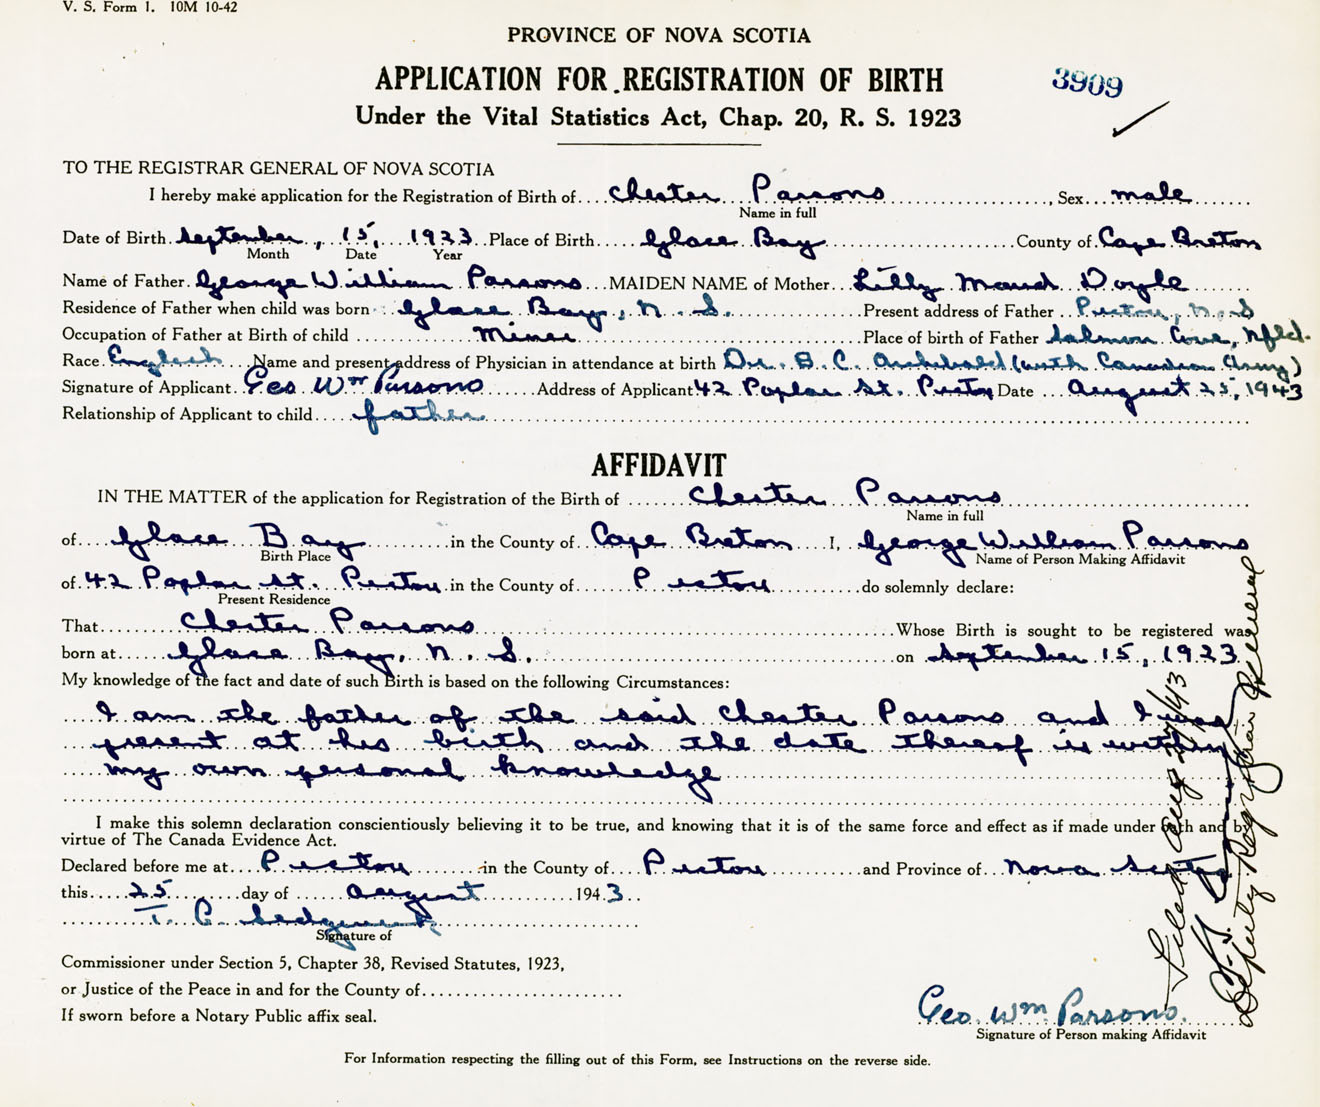 V. S. Form 1. 10M 10-42
PROVINCE OF NOVA SCOTIA
APPLICATION FOR REGISTRATION OF BIRTH
3909
Under the Vital Statistics Act, Chap. 20, R. S. 1923
TO THE REGISTRAR GENERAL OF NOVA SCOTIA
I hereby make application for the Registration of Birth of Chester Parsons, Sex male
Name in full
Date of Birth September, 15, 1923 Place of Birth Glace Bay County of Cape Breton
Month Date Year
Name of Father George William Parsons MAIDEN NAME of Mother Lilly Maud Doyle
Residence of Father when child was born Glace Bay, N. S. Present address of Father Pictou, N. S
Occupation of Father at Birth of child Miner Place of birth of Father Salmon Cove, Nfld.
Race English Name and present address of Physician in attendance at birth Dr. B. C. Archibald (with Canadian Army)
Signature of Applicant Geo Wm Parsons Address of Applicant 42 Poplar St. Pictou Date August 25, 1943
Relationship of Applicant to child father
AFFIDAVIT
IN THE MATTER of the application for Registration of the Birth of Chester Parsons
Name in full
of Glace Bay in the County of Cape Breton I, George William Parsons
Birth Place Name of Person Making Affidavit
of 42 Poplar St. Pictou in the County of Pictou do solemnly declare:
Present Residence
That Chester Parsons Whose Birth is sought to be registered was
born at Glace Bay, N. S. on September 15, 1923
My knowledge of the fact and date of such Birth is based on the following Circumstances:
I am the father of the said Chester Parsons and I was
present at his birth and the date thereof is within
my own personal knowledge
I make this solemn declaration conscientiously believing it to be true, and knowing that it is of the same force and effect as if made under Oath and by
virtue of The Canada Evidence Act.
Declared before me at Pictou in the County of Pictou and Province of Nova Scotia
this 25 day of August 1943
T. C. Sedgewick
Signature of
Commissioner under Section 5, Chapter 38, Revised Statutes, 1923,
or Justice of the Peace in and for the County of
If sworn before a Notary Public affix seal.
Geo. Wm Parsons.
Signature of Person making Affidavit
For Information respecting the filling out of this Form, see Instructions on the reverse side.
Filed Aug 27/43
Deputy Registrar General